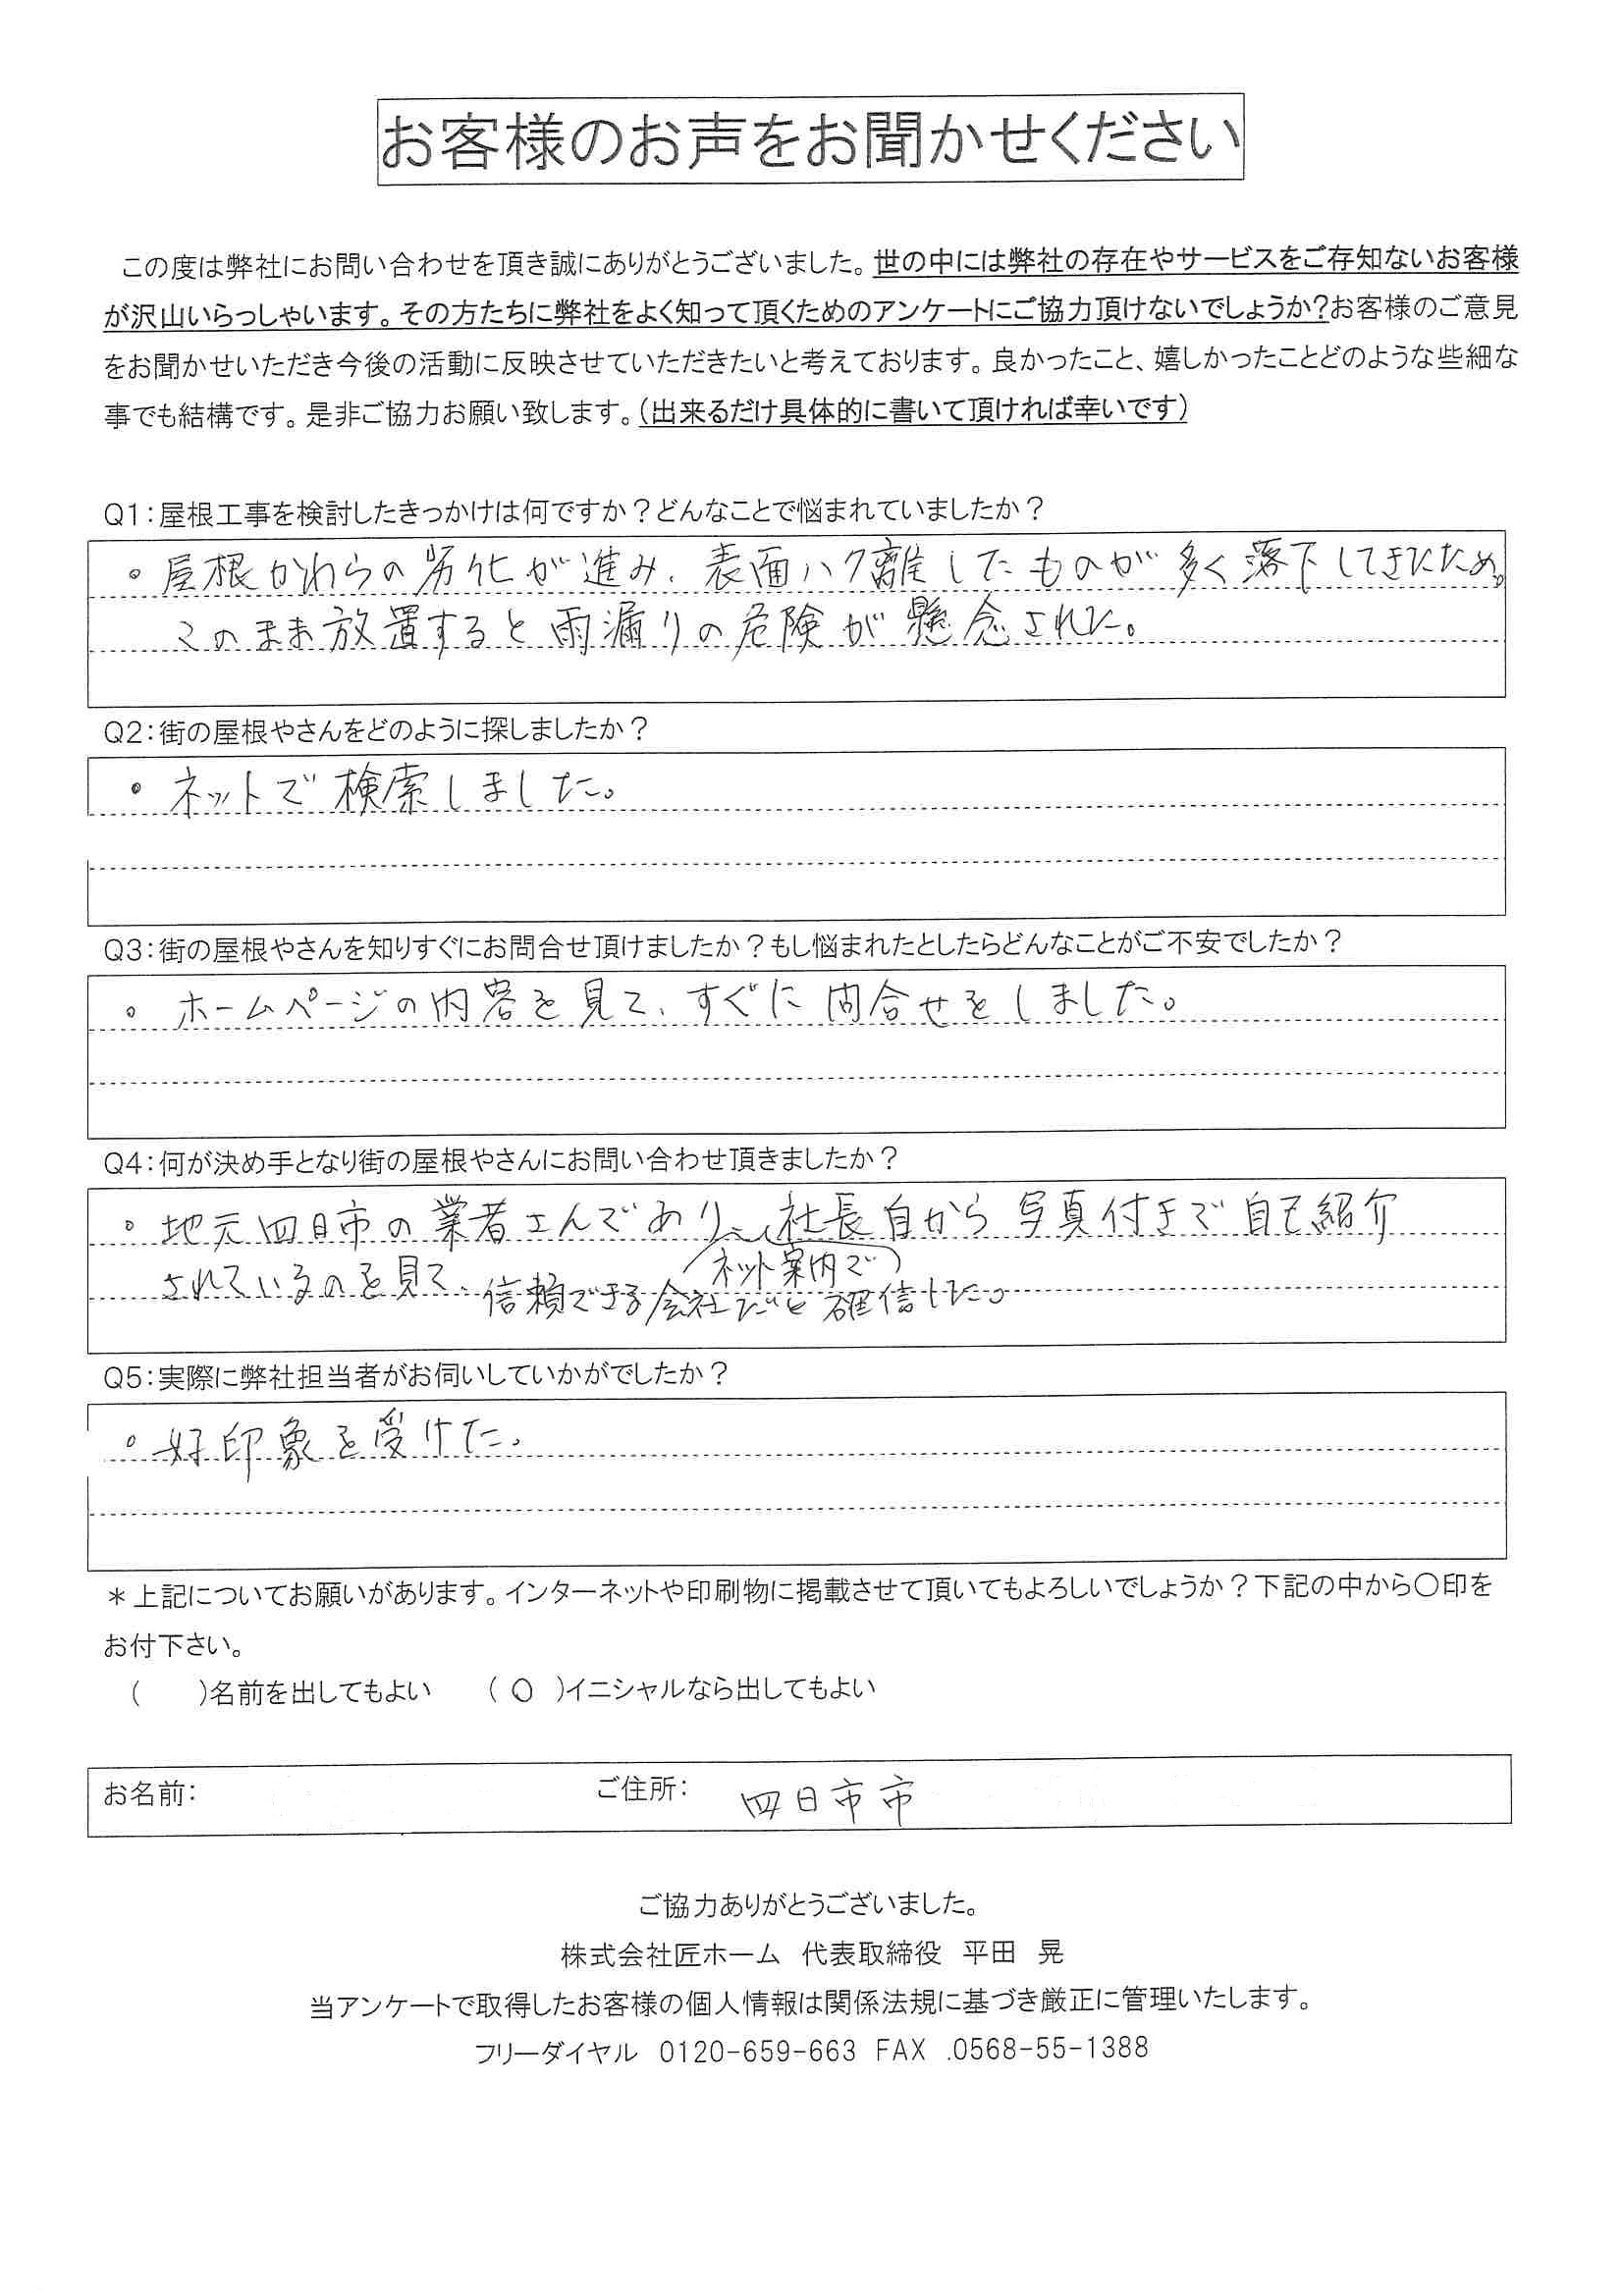 お客様のお声をお聞かせください
この度は弊社にお問い合わせを頂き誠にありがとうございました。世の中には弊社の存在やサービスをご存知ないお客様
が沢山いらっしゃいます。その方たちに弊社をよく知って頂くためのアンケートにご協力頂けないでしょうか?お客様のご意見
をお聞かせいただき今後の活動に反映させていただきたいと考えております。良かったこと、嬉しかったことどのような些細な
事でも結構です。是非ご協力お願い致します。(出来るだけ具体的に書いて頂ければ幸いです)
Q1:屋根工事を検討したきっかけは何ですか?どんなことで悩まれていましたか?
。屋根かわらの劣化が進み、表面ハク離したものが多く落下してきたため。
このまま放置すると雨漏りの危険が懸念された。
Q2:街の屋根やさんをどのように探しましたか?
・ネットで検索しました。
Q3:街の屋根やさんを知りすぐにお問合せ頂けましたか?もし悩まれたとしたらどんなことがご不安でしたか?
。ホームページの内容を見て、すぐに問合せをしました。
Q4:何が決め手となり街の屋根やさんにお問い合わせ頂きましたか?
。地元四日市の業者さんであり、社長自から写真付きで自己紹介
ネット案内で
されているのを見て、信頼できる会社だと確信した。
Q5:実際に弊社担当者がお伺いしていかがでしたか?
。好印象を受けた。
*上記についてお願いがあります。インターネットや印刷物に掲載させて頂いてもよろしいでしょうか?下記の中から○印を
お付下さい。
( )名前を出してもよい (○)イニシャルなら出してもよい
お名前: ご住所: 四日市市
ご協力ありがとうございました。
株式会社匠ホーム 代表取締役 平田 晃
当アンケートで取得したお客様の個人情報は関係法規に基づき厳正に管理いたします。
フリーダイヤル 0120-659-663 FAX .0568-55-1388